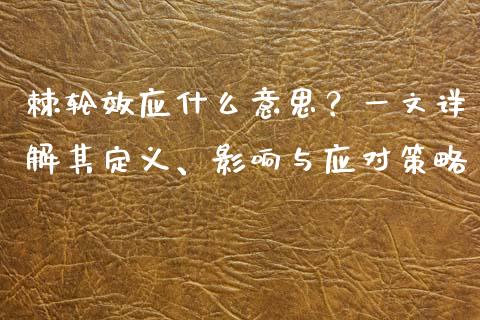 棘轮效应什么意思？一文详
解其定义、影响与应对策略